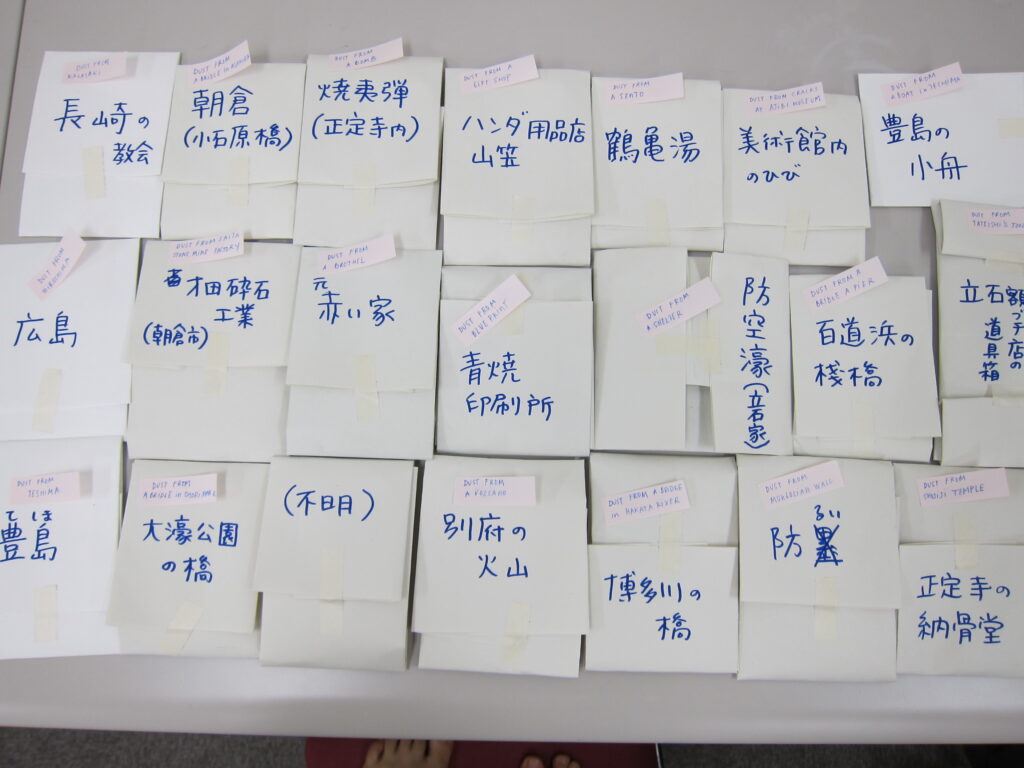 DUST FROM
長崎の
教会
DUST FROM
朝倉
(小石原橋)
DUST FROM
A BOMB
焼夷弾
(正定寺内)
DUST FROM A
GIFT SHOP
ハンダ用品店
山笠
DUST FROM
A SENTO
鶴亀湯
DUST FROM CRACKS
AT ASIAN MUSEUM
美術館内
のひび
DUST FROM
A BOAT IN TESHIMA
豊島の
小舟
DUST FROM
HIROSHIMA
広島
DUST FROM SAITA
STONE MINE FACTORY
才田砕石
工業
(朝倉市)
DUST FROM
A BROTHEL
元
赤い家
DUST FROM
BLUE PRINT
青焼
印刷所
DUST FROM
A SHELTER
防空濠(立石家)
DUST FROM A
BRIDLE A PIER
百道浜の
桟橋
DUST FROM
立石額ブチ店の
道具箱
DUST FROM
TESHIMA
てしま
豊島
DUST FROM
A BRIDGE in OHORI PARK
大濠公園
の橋
(不明)
DUST FROM
A VOLCANO
別府の
火山
DUST FROM A BRIDGE
in HAKATA RIVER
博多川の
橋
DUST FROM
MONGOLIAN WALL
るい
防塁
DUST FROM
SHOJOJI TEMPLE
正定寺の
納骨堂